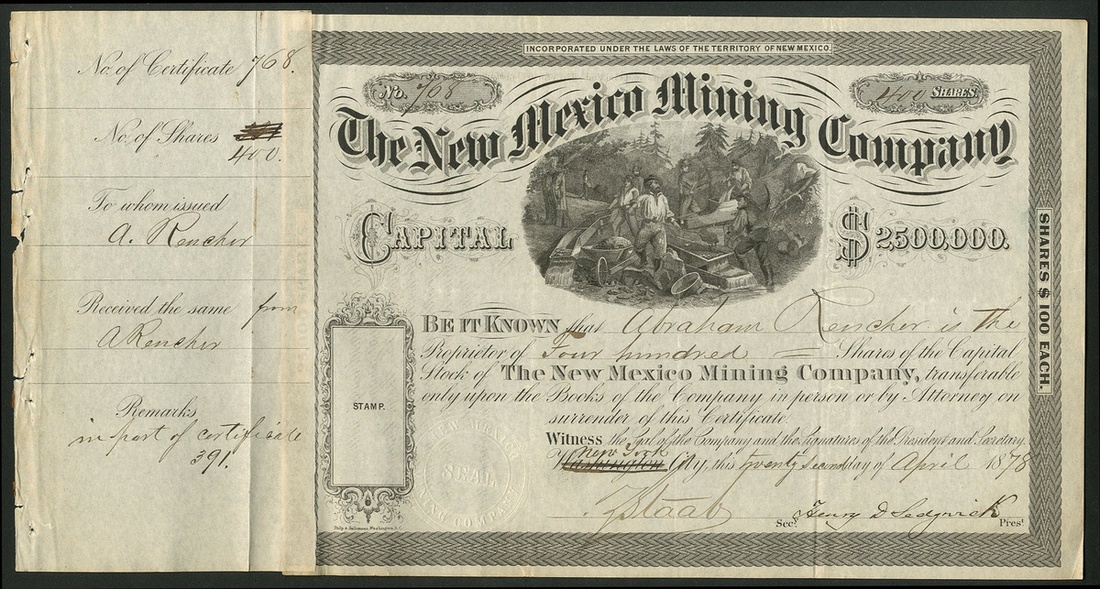 No. of Certificate 768.
No. of Shares
400.
To whom issued
A. Rencher
Received the same from
A Rencher
Remarks
in part of certificate
391.
INCORPORATED UNDER THE LAWS OF THE TERRITORY OF NEW MEXICO.
No. 768
400 SHARES
The New Mexico Mining Company
CAPITAL $2,500,000.
SHARES $100 EACH.
BE IT KNOWN that Abraham Rencher is the
Proprietor of Four hundred = Shares of the Capital
Stock of The New Mexico Mining Company, transferable
only upon the Books of the Company in person or by Attorney on
surrender of this Certificate.
Witness the Seal of the Company and the Signatures of the President and Secretary.
New York
Washington City, this twenty second day of April 1878
STAMP.
NEW MEXICO
SEAL
MINING COMPANY
Z Staab Sec. Henry D Sedgwick Prest
Philp & Solomons, Washington, D.C.